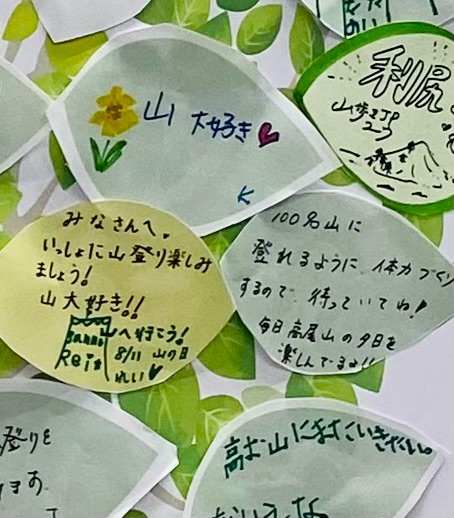 山 大好き
K
利尻
みなさんへ。
いっしょに山登り楽しみ
ましょう!
山大好き!!
へ行こう!
8/11 山の日
Rei
れい
100名山に
登れるように、体力づくり
するので、待っていてね!
毎日高尾山の夕日を
楽しんでるよ!!
登りを
ます。
高お山にまたいきたい。